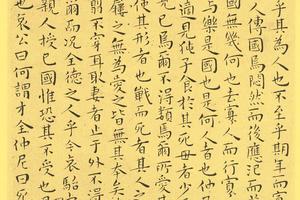 乎其為人也不至乎期年而寡
人傳國焉悶然而後應氾而
國無幾何也去寡人而行寡
與樂是國也是何人者也仲尼
適見㹠子食於其死母者少
見己焉爾不得類焉爾所愛其
使其形者也戰而死者其人之
屨之無為愛之皆無其本矣
翦不穿耳取妻者止于外不得
爾而況全德之人乎今哀駘
親人授己國惟恐其不受也
也哀公曰何謂才全仲尼曰死